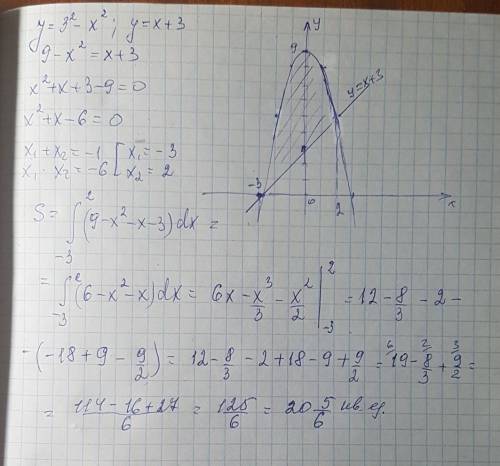 y = 3² - x² ; y = x+3
9 - x² = x+3
x² + x + 3 - 9 = 0
x² + x - 6 = 0
x₁ + x₂ = -1 [ x₁ = -3
x₁ · x₂ = -6 [ x₂ = 2
S = ∫₋₃² (9 - x² - x - 3) dx =
= ∫₋₃² (6 - x² - x) dx = 6x - x³/3 - x²/2 |₋₃² = 12 - 8/3 - 2 -
- (-18 + 9 - 9/2) = 12 - 8/3 - 2 + 18 - 9 + 9/2 = ⁶19 - ²8/3 + ³9/2 =
= (114 - 16 + 27)/6 = 125/6 = 20 5/6 кв.ед.
y
9
y=x+3
-3
0
2
x